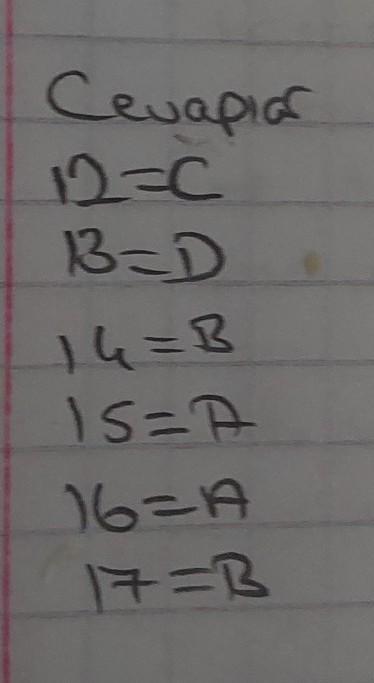 Cevaplar
12=C
13=D
14=B
15=A
16=A
17=B